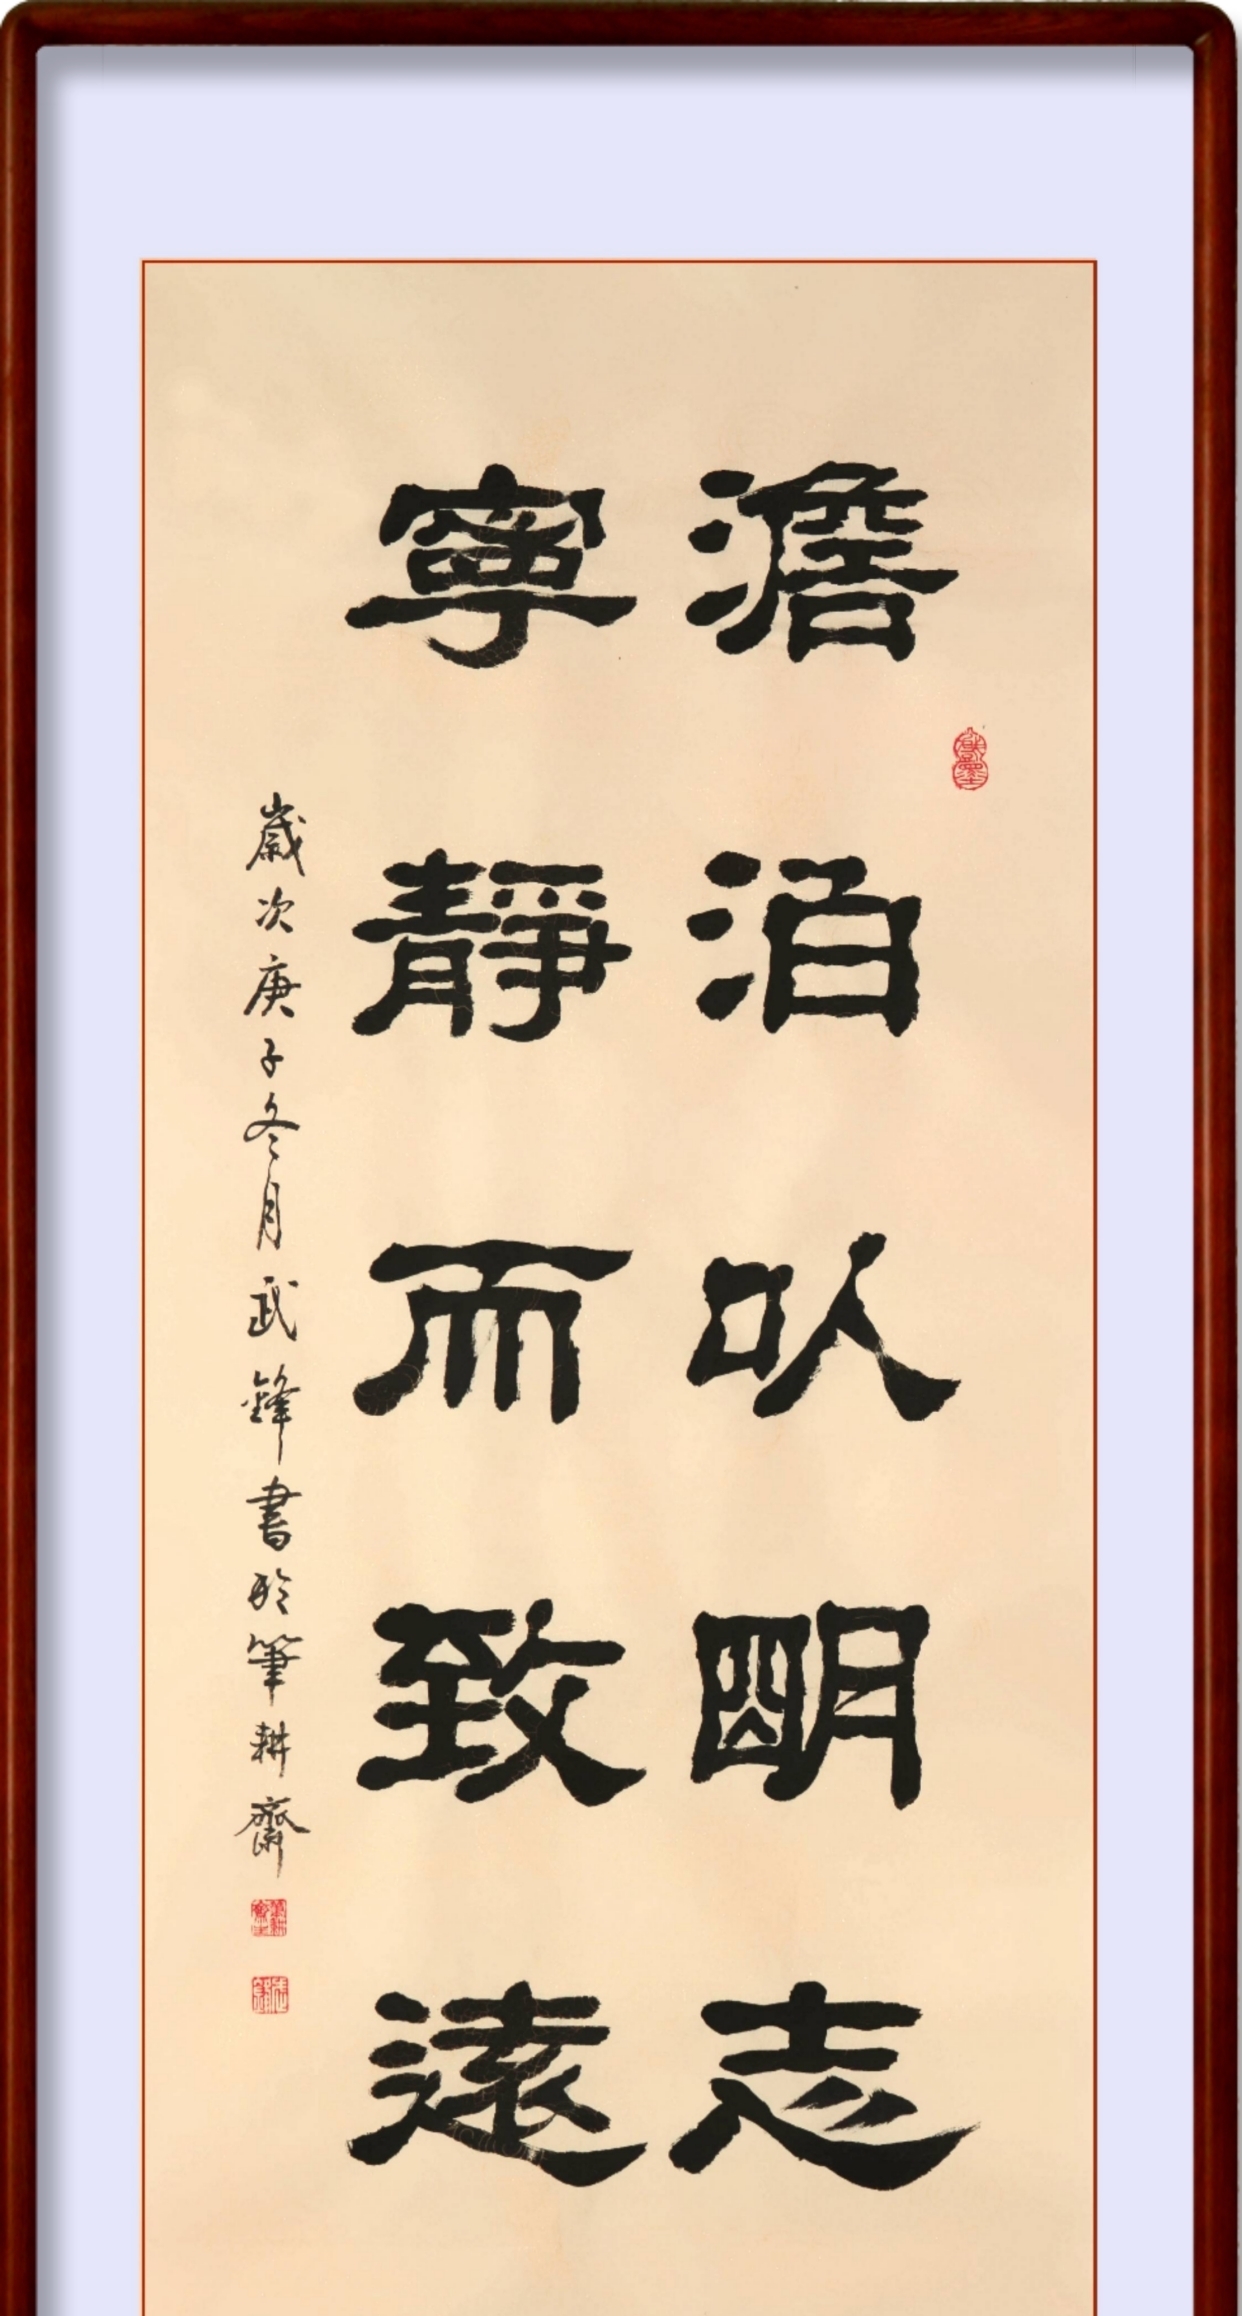 澹泊以明志
寧靜而致遠
歲次庚子冬月武鋒書於筆耕齋